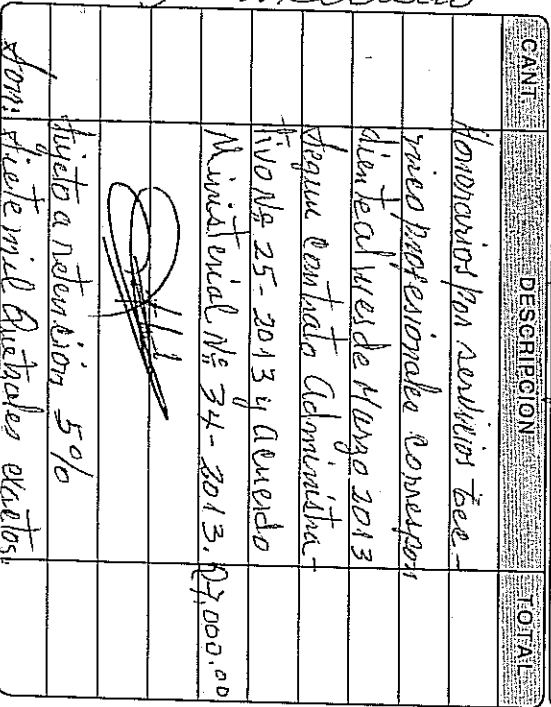 CANT DESCRIPCION TOTAL
Honorarios por servicios téc-
nico profesionales correspon
diente al mes de Marzo 2013
Según contrato Administra-
tivo Nº 25-2013 y acuerdo
Ministerial Nº 34-2013. Q7,000.00
Sujeto a retención 5%
Son: Siete mil Quetzales exactos.